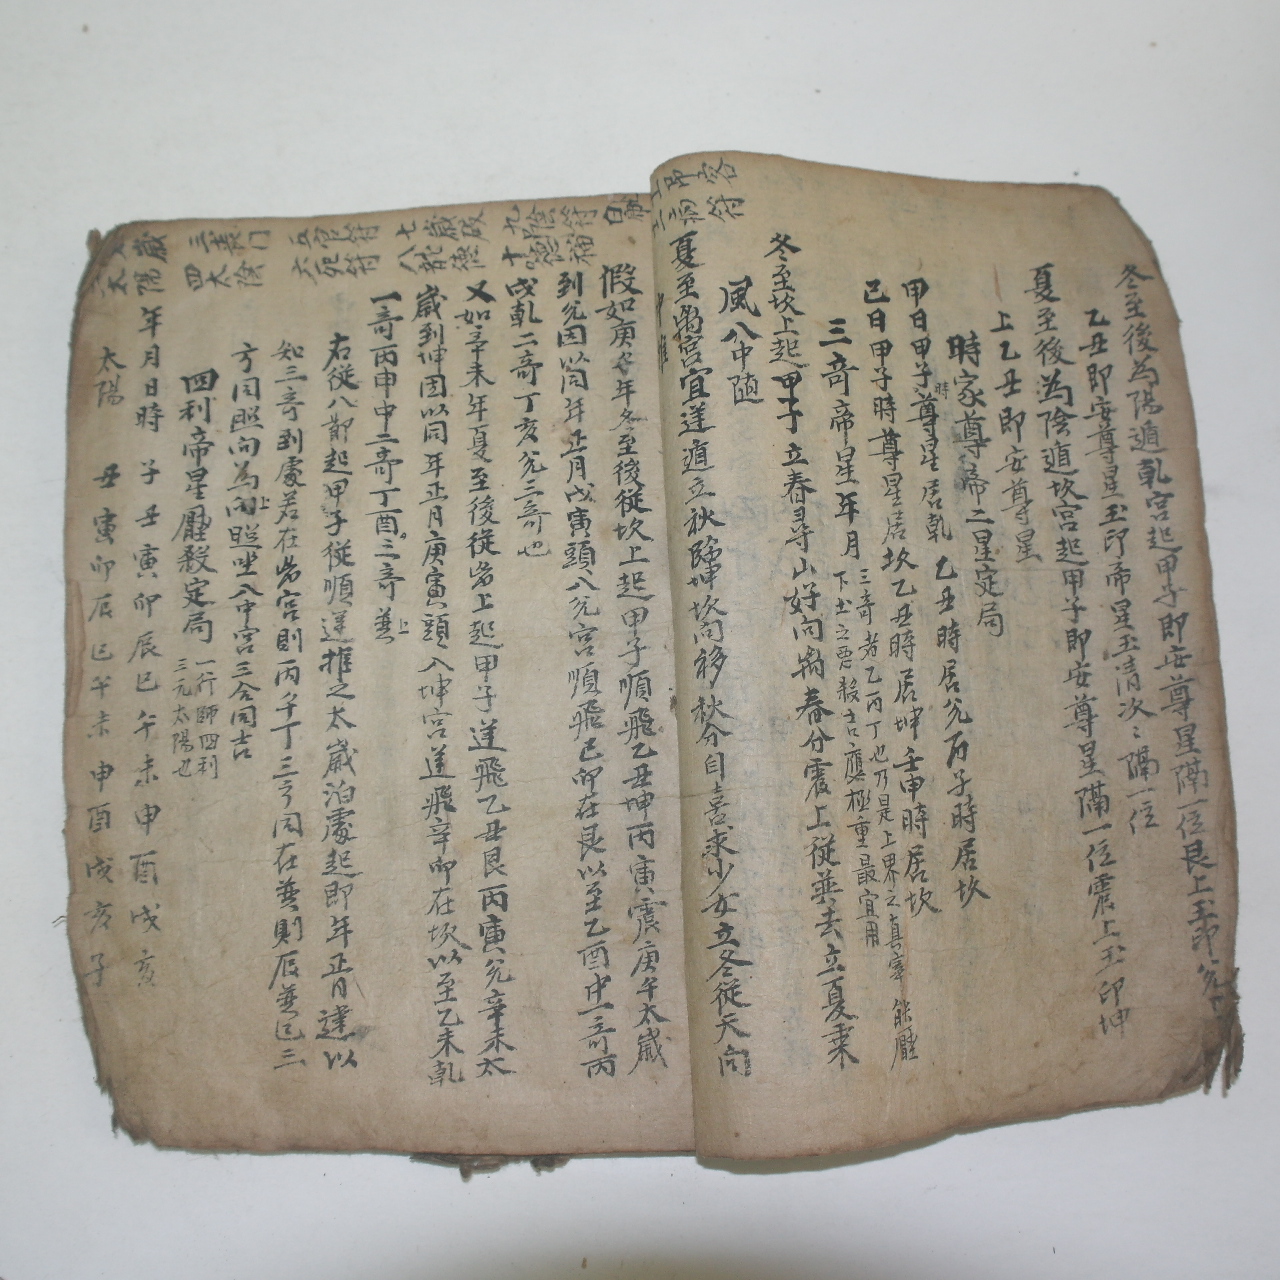 冬至後為陽遁乾宮起甲子即安尊星隔一位艮上玉印
乙丑即安尊星玉印帝星玉清次〻隔一位
夏至後為陰遁坎宮起甲子即安尊星隔一位震上玉印坤
上乙丑即安尊星
時家尊帝二星定局
甲日甲子時尊星居乾 乙丑時居兌 丙子時居坎
己日甲子時尊星居坎 乙丑時居坤 壬申時居坎
三奇帝星年月 三奇者乙丙丁也乃是上界之真宰 能壓
下土之惡殺吉慶極重最宜用
冬至坎上起甲子立春尋山好向离春分震上從巽去立夏秉
風八中随
夏至离宮宜逆遁立秋歸坤坎向移秋分自喜求少女立冬從天向
假如庚午年冬至後從坎上起甲子順飛乙丑坤丙寅震庚午太歲
到兌因以同年正月戊寅頭入兌宮順飛己卯在艮以至乙酉中一奇丙
戌乾二奇丁亥兌三奇也
又如辛未年夏至後從离上起甲子逆飛乙丑艮丙寅兌辛未太
歲到坤因以同年正月庚寅頭入坤宮逆飛辛卯在坎以至乙未乾
一奇丙申中二奇丁酉三奇巽上
右從八節起甲子從順逆推之太歲泊處起即年正月建以
知三奇到處若在离宮則丙午丁三亇同在巽則辰巽巳三
方同照向為向上照坐入中宮三合同吉
四利帝星壓殺定局 一行師四利
三元太陽也
年月日時 子丑寅卯辰巳午未申酉戌亥
太陽 丑寅卯辰巳午未申酉戌亥子
歲
陽
三喪門
四太陰
五官符
六死符
七歲破
八龍德
九
十
福
白